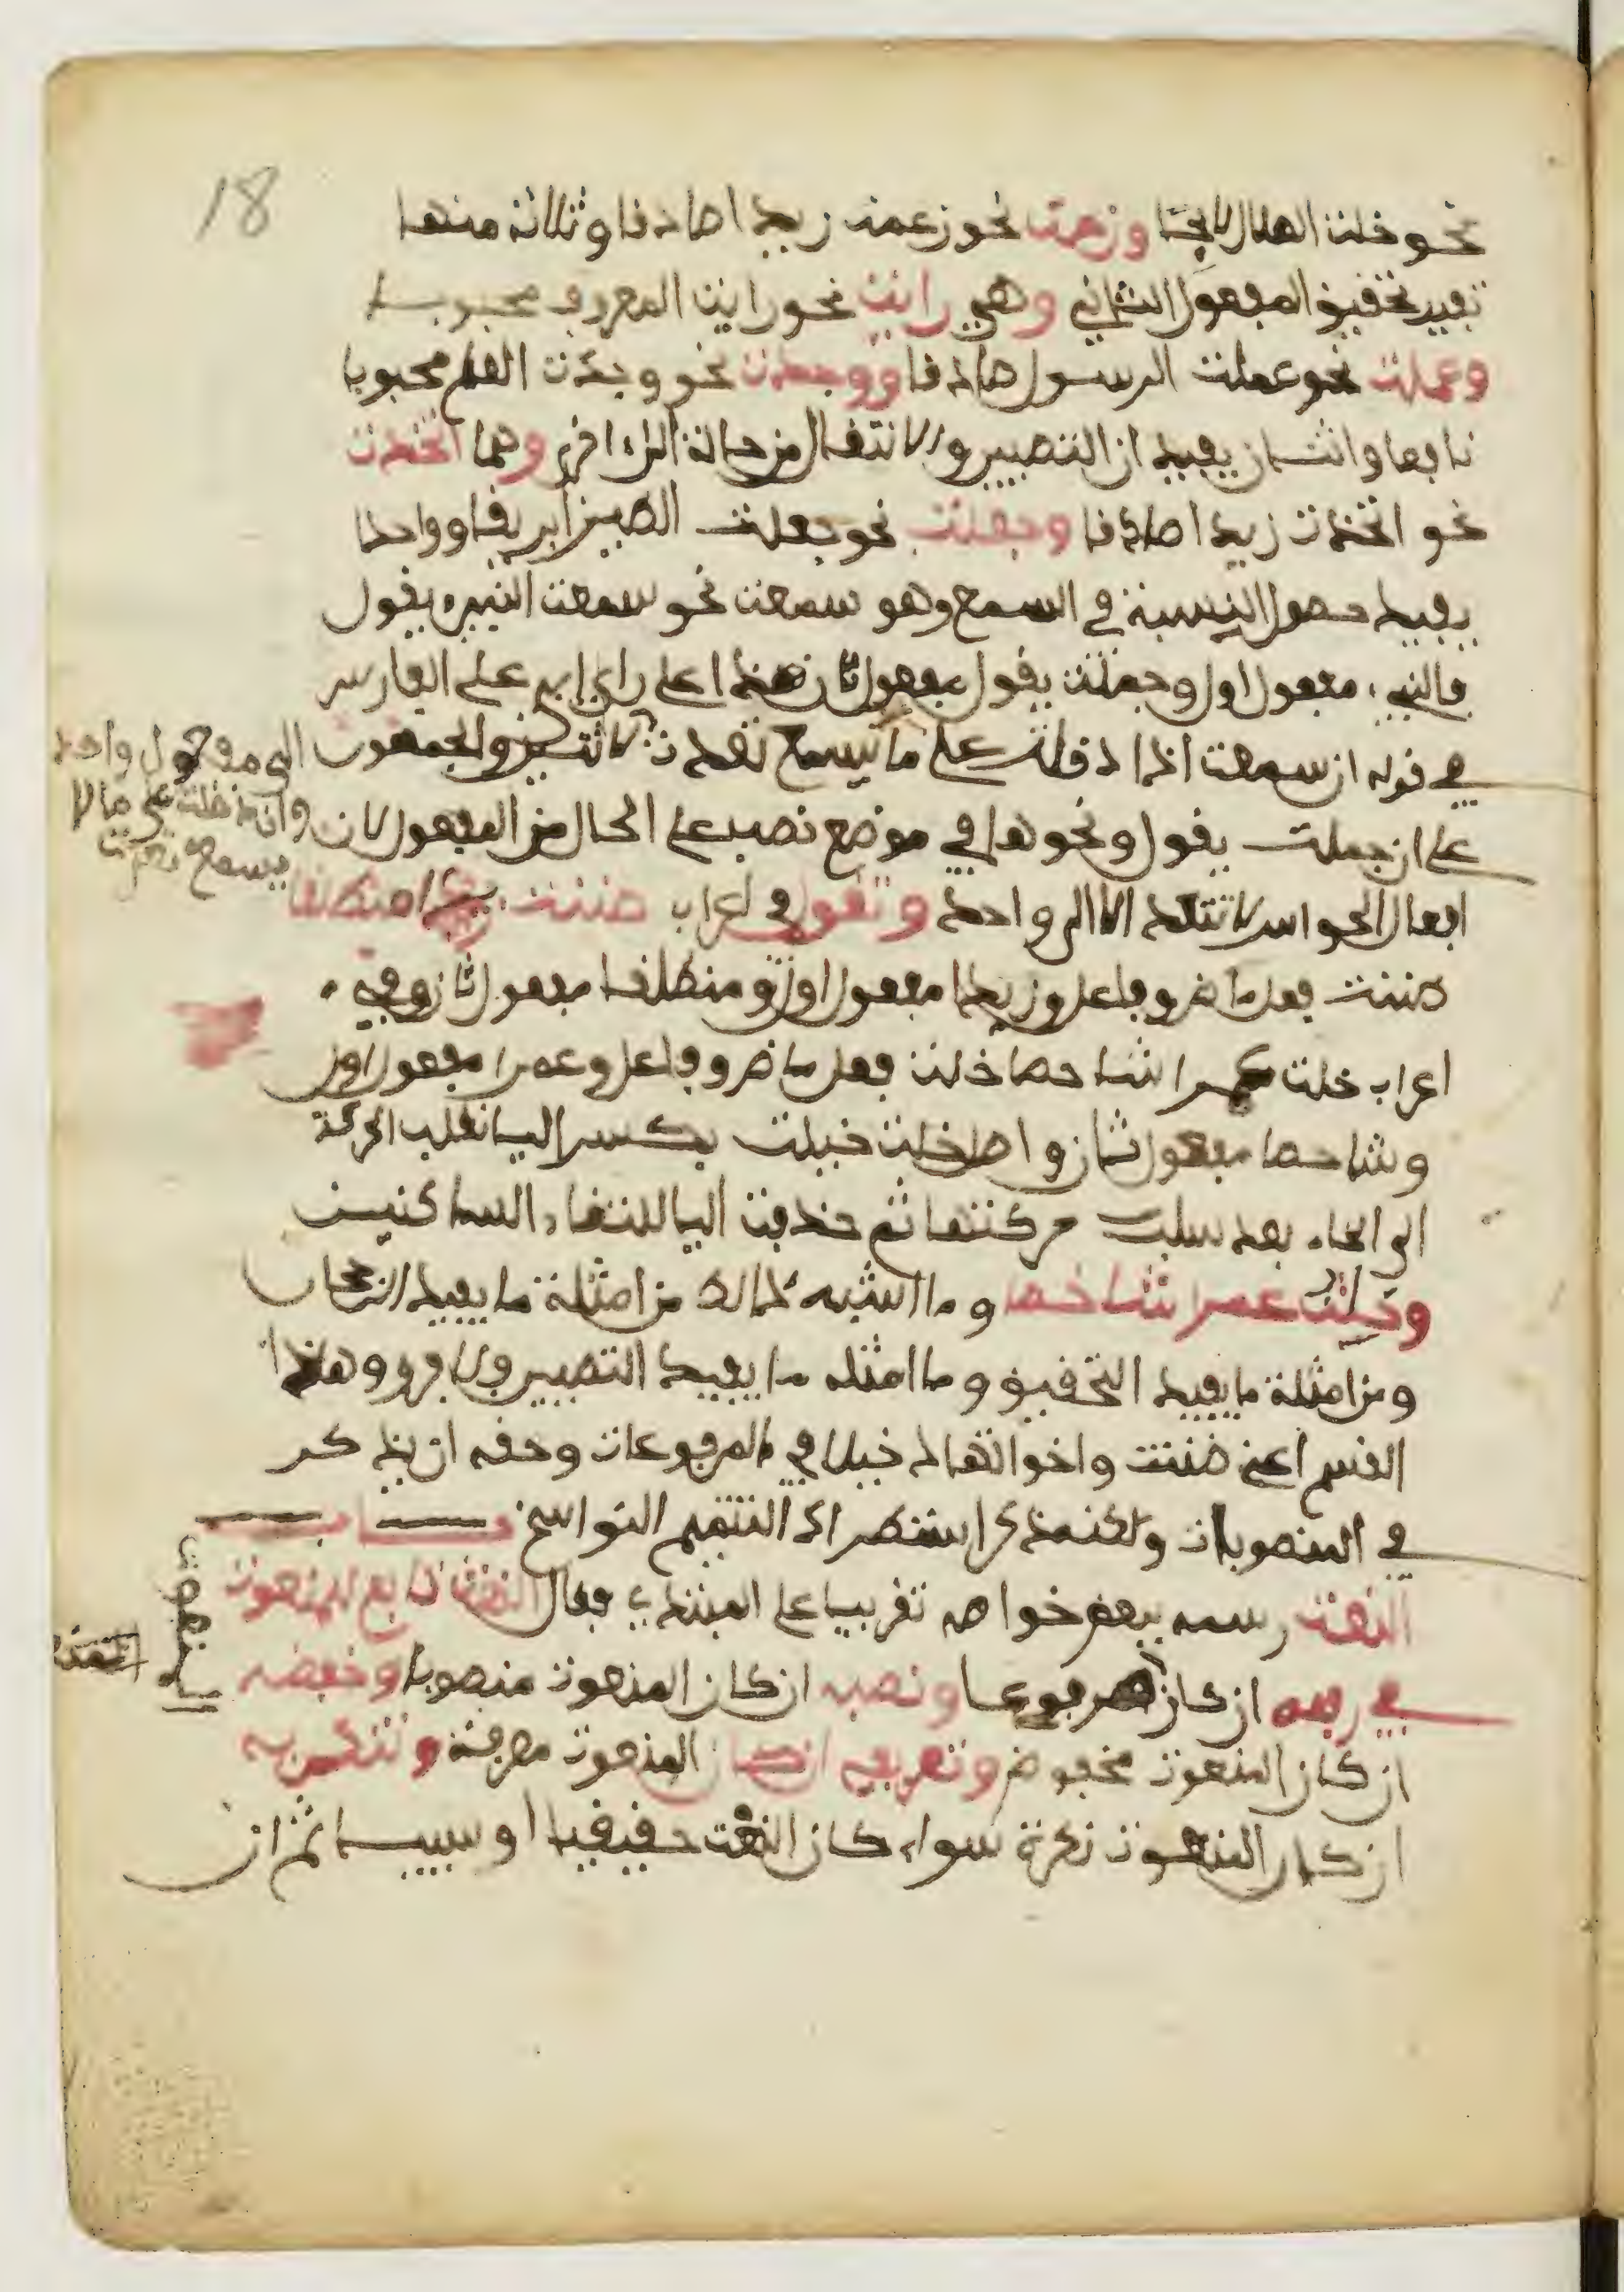 18
نحو خلت الهلال لايحا وزعمت نحو زعمت زيدا صادقا وثلاثة منها
تفيد تحقيق المفعول الثاني وهي رايت نحو رايت المعروف محبوبا
وعملت نحو عملت الرسول صادقا ووجدت نحو وجدت العلم محبوبا
نافعا واثنان يفيدان التصيير والانتقال من حالة الى اخرى وهما اتخذت
نحو اتخذت زيدا صادقا وجعلت نحو جعلت الطين ابريقا وواحدا
يفيد حصول النسبة في السمع وهو سمعت نحو سمعت النبيء يقول
فالنبيء مفعول اول وجملت يقول مفعول ثان هذا على راي ابي على الفارسي
في قوله ان سمعت اذا دخلت على ما يسمع تعدت لاثنين والجمهور
على ان جملت يقول ونحوها في موضع نصب على الحال من المفعول لان
افعال الحواس لا تتعد الا الى واحد وتقول في اعراب ضننت زيدا منطلقا
ضننت فعل ماض وفاعل وزيدا مفعول اول ومنطلقا مفعول ثان وفي
اعراب خلت عمرا شاخصا خلت فعل ماض وفاعل وعمرا مفعول اول
وشاخصا مفعول ثان واصل خلت خيلت بكسر اليا نقلت الحركة
الى الخاء بعد سلب حركتها ثم حذفت اليا لالتقاء الساكنين
وخلت عمرا شاخصا وما اشبه ذالك من امثلة ما يفيد الرجحان
ومن امثلة ما يفيد التحقيق وما امثله ما يفيد التصيير ولا فرق وهاذا
القسم اعني ضننت واخواتها دخيلا في المرفوعات وحقه ان يذكر
في المنصوبات ولكنه ذكر استطرادا لتتميم النواسخ بـــاب
النعت رسمه ببعض خواصه تقريبا على المبتدي فقال النعت تابع للمنعوت
في رفعه ان كان مرفوعا ونصبه ان كان المنعوت منصوبا وخفضه
ان كان المنعوت مخفوض وتعريفه ان كان المنعوت معرفة وتنكيره
ان كان المنعوت نكرة سواء كان النعت حقيقيا او سببيا ثم ان
الى مفعول واحد
وان دخلت على ما لا
يسمع تعدت
المنعوت